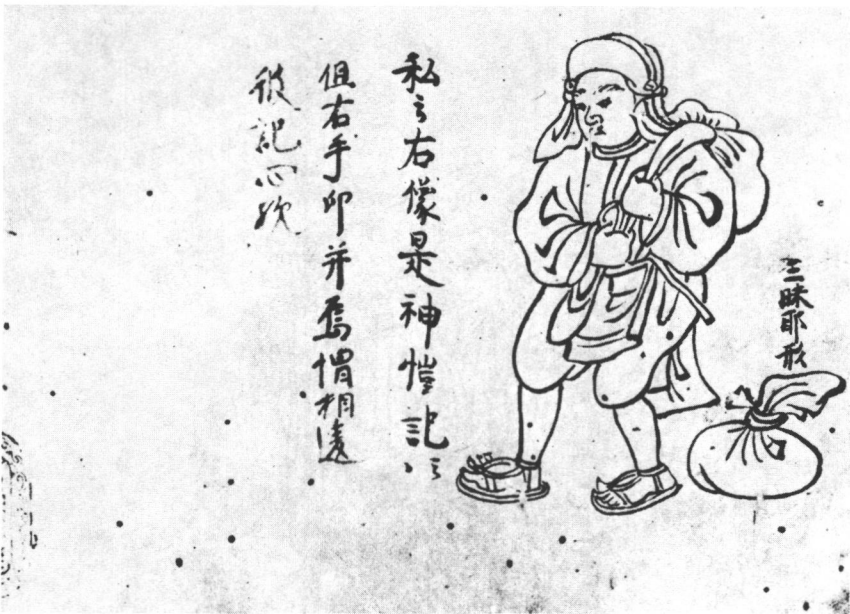 三昧耶形
私云右像是神愷記云云
但右手印并烏帽相違
彼記心欤